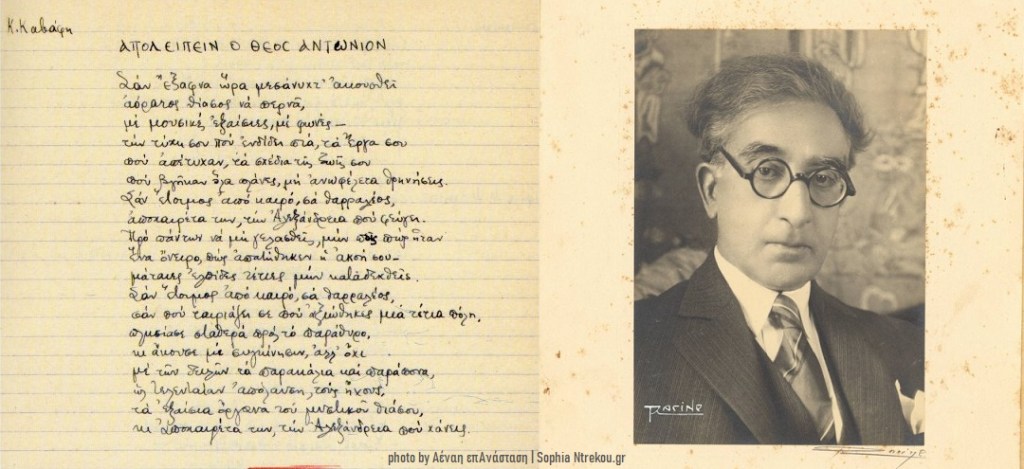 Κ. Καβάφη
ΑΠΟΛΕΙΠΕΙΝ Ο ΘΕΟΣ ΑΝΤΩΝΙΟΝ
Σάν ἔξαφνα ὥρα μεσάνυχτ' ἀκουσθεῖ
ἀόρατος θίασος νά περνᾶ,
μέ μουσικές ἐξαίσιες, μέ φωνές —
τήν τύχη σου πού ἐνδίδει πιά, τά ἔργα σου
πού ἀπέτυχαν, τά σχέδια τῆς ζωῆς σου
πού βγῆκαν ὅλα πλάνες, μή ἀνωφέλετα θρηνήσεις.
Σάν ἕτοιμος ἀπό καιρό, σά θαρραλέος,
ἀποχαιρέτα την, τήν Ἀλεξάνδρεια πού φεύγει.
Πρό πάντων νά μή γελασθεῖς, μήν πεῖς πώς ἦταν
ἕνα ὄνειρο, πώς ἀπατήθηκεν ἡ ἀκοή σου —
μάταιες ἐλπίδες τέτοιες μήν καταδεχθεῖς.
Σάν ἕτοιμος ἀπό καιρό, σά θαρραλέος,
σάν πού ταιριάζει σε πού ἀξιώθηκες μιά τέτοια πόλη,
πλησίασε σταθερά πρός τό παράθυρο,
κι ἄκουσε μέ συγκίνησιν, ἀλλ' ὄχι
μέ τῶν δειλῶν τά παρακάλια καί παράπονα,
ὡς τελευταίαν ἀπόλαυση τούς ἤχους,
τά ἐξαίσια ὄργανα τοῦ μυστικοῦ θιάσου,
κι ἀποχαιρέτα την, τήν Ἀλεξάνδρεια πού χάνεις.
RACINE
photo by Αέναη επΑνάσταση | Sophia Ntrekou.gr